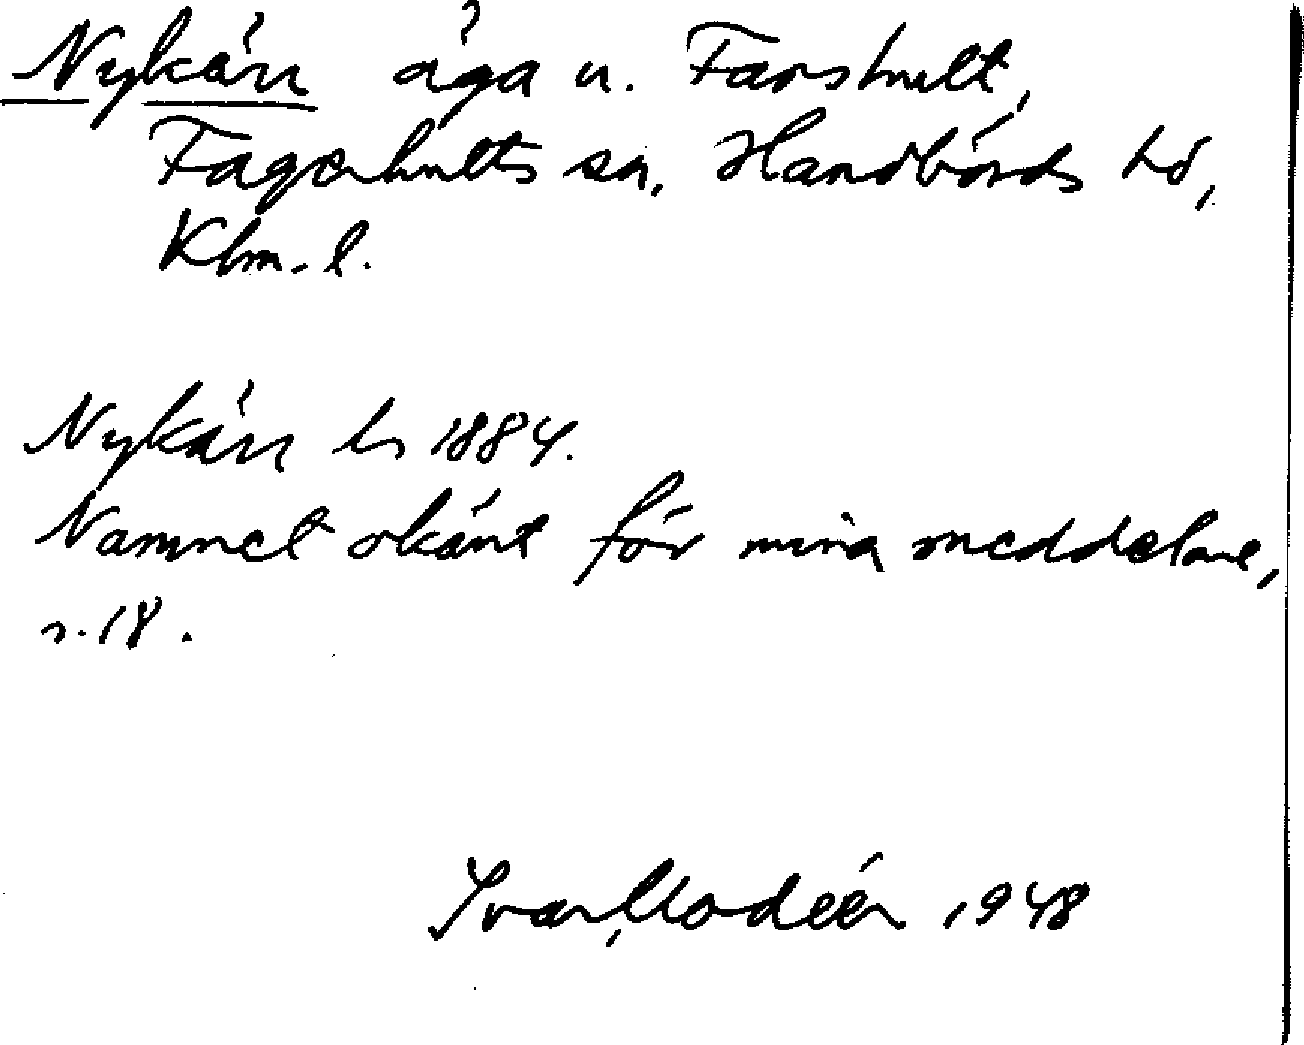 Nykärr äga u. Farshult,
Fagerhults sn, Handbörds hd,
Klm. l.
Nykärr ls 1884.
Namnet okänt för mina meddelare,
s. 18.
Ivar Modéer 1948